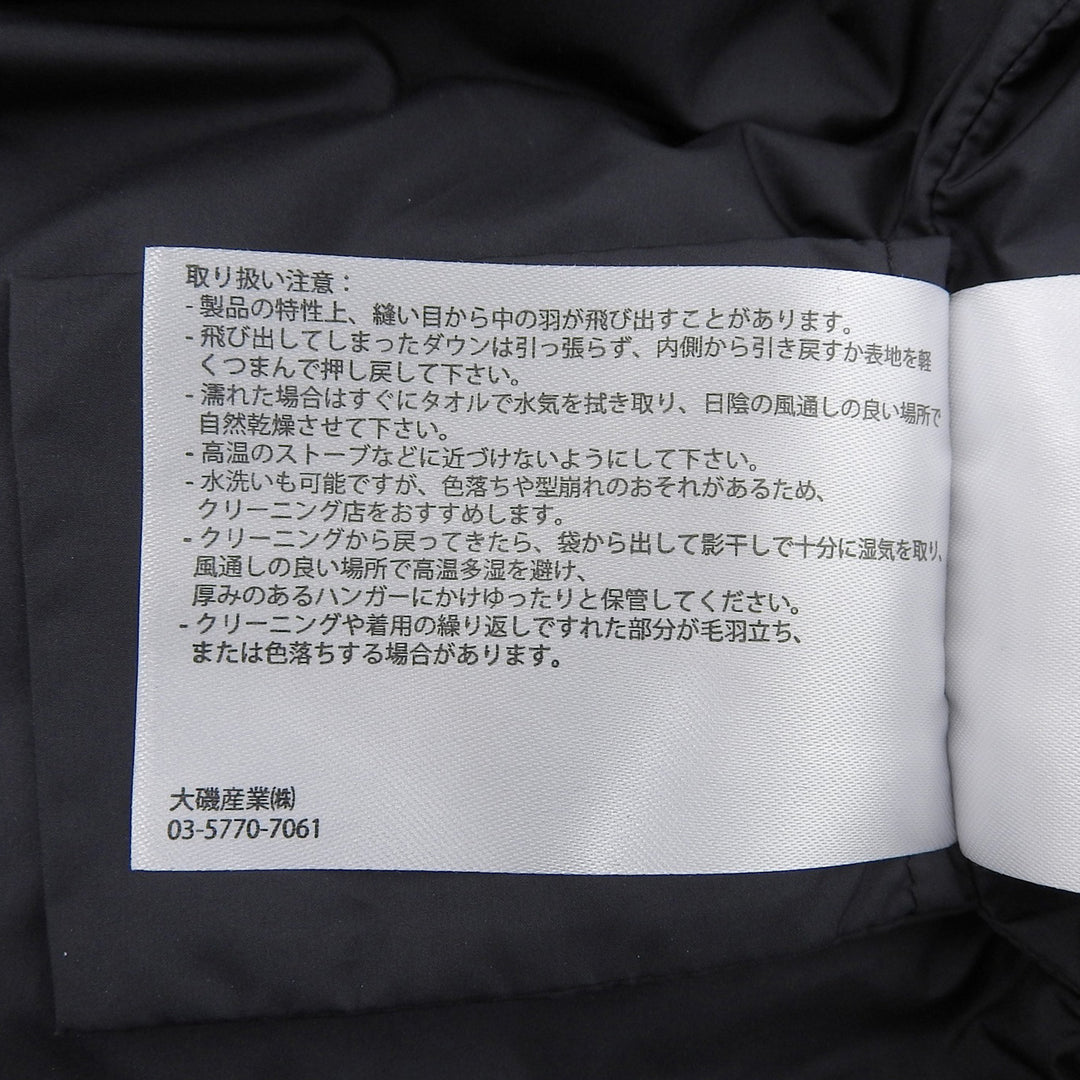 取り扱い注意：
- 製品の特性上、縫い目から中の羽が飛び出すことがあります。
- 飛び出してしまったダウンは引っ張らず、内側から引き戻すか表地を軽
くつまんで押し戻して下さい。
- 濡れた場合はすぐにタオルで水気を拭き取り、日陰の風通しの良い場所で
自然乾燥させて下さい。
- 高温のストーブなどに近づけないようにして下さい。
- 水洗いも可能ですが、色落ちや型崩れのおそれがあるため、
クリーニング店をおすすめします。
- クリーニングから戻ってきたら、袋から出して影干しで十分に湿気を取り、
風通しの良い場所で高温多湿を避け、
厚みのあるハンガーにかけゆったりと保管してください。
- クリーニングや着用の繰り返しですれた部分が毛羽立ち、
または色落ちする場合があります。
大磯産業㈱
03-5770-7061